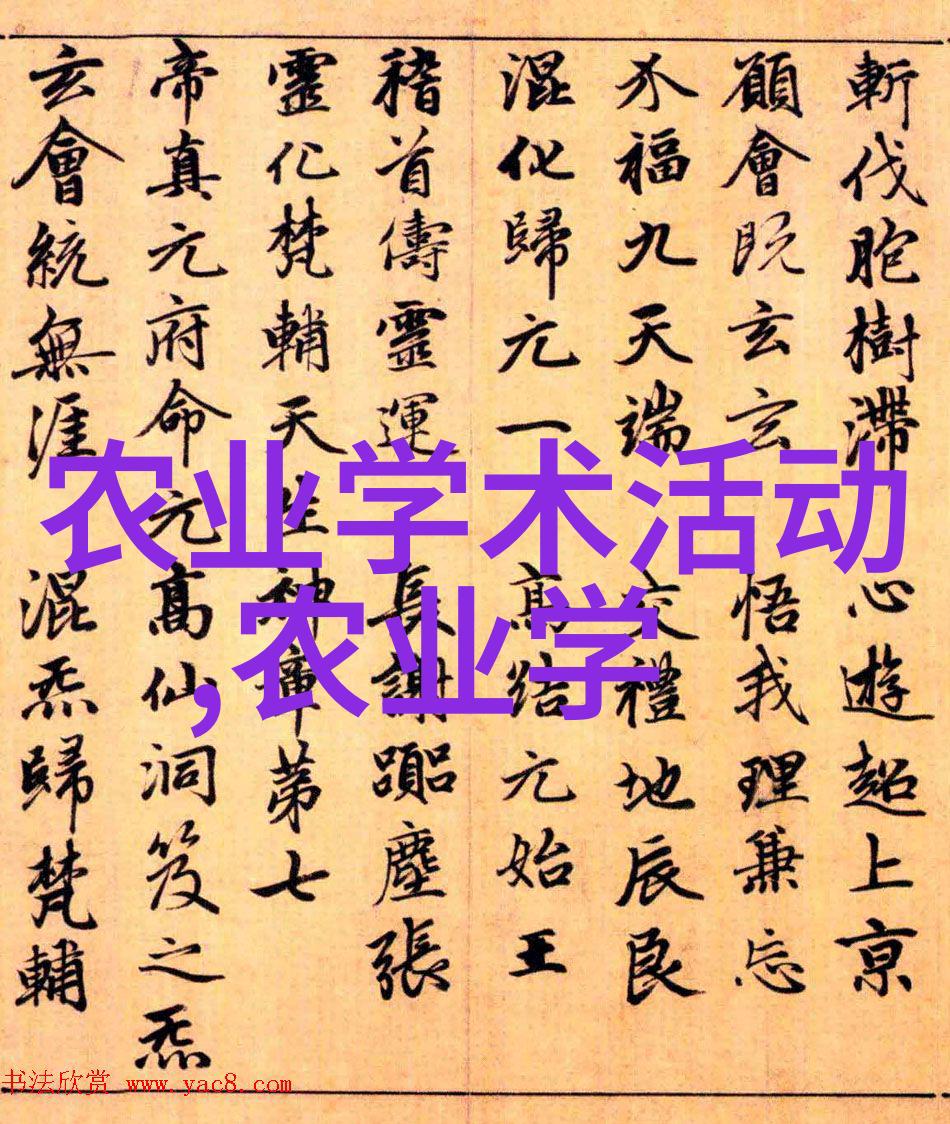 斬伐胞樹滯心遊超上京
願會既玄玄悟我理兼忘
介福九天端交禮地辰良
混化歸元一高結元始王
稽首儔靈運長謝躡塵張
靈化梵輔天生神章第七
帝真元府命元高仙洞笈之炁
玄會統無涯混炁歸梵輔
农业学术活动
,农业学
书法欣赏 www.yac8.com